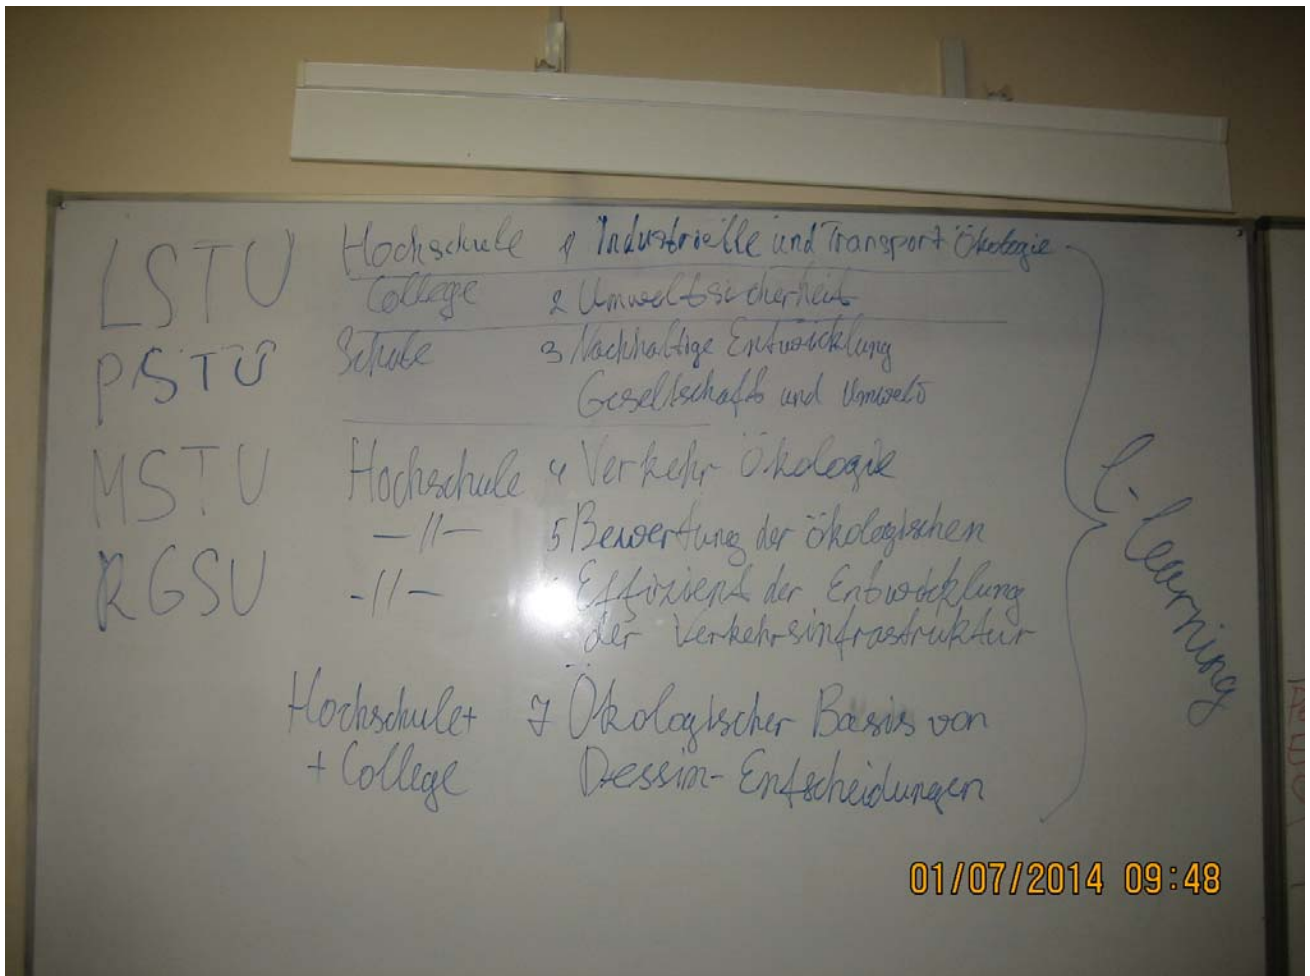 LSTU Hochschule 1 Industrielle und Transport Ökologie
College 2 Umweltsicherheit
PSTU Schule 3 Nachhaltige Entwicklung
Gesellschaft und Umwelt
MSTU Hochschule 4 Verkehr Ökologie
—//— 5 Bewertung der ökologischen
RGSU -//— Effizient der Entwicklung
der Verkehrsinfrastruktur
Hochschule+ 7 Ökologischer Basis von
+ College Dessin-Entscheidungen
e-learning
01/07/2014 09:48